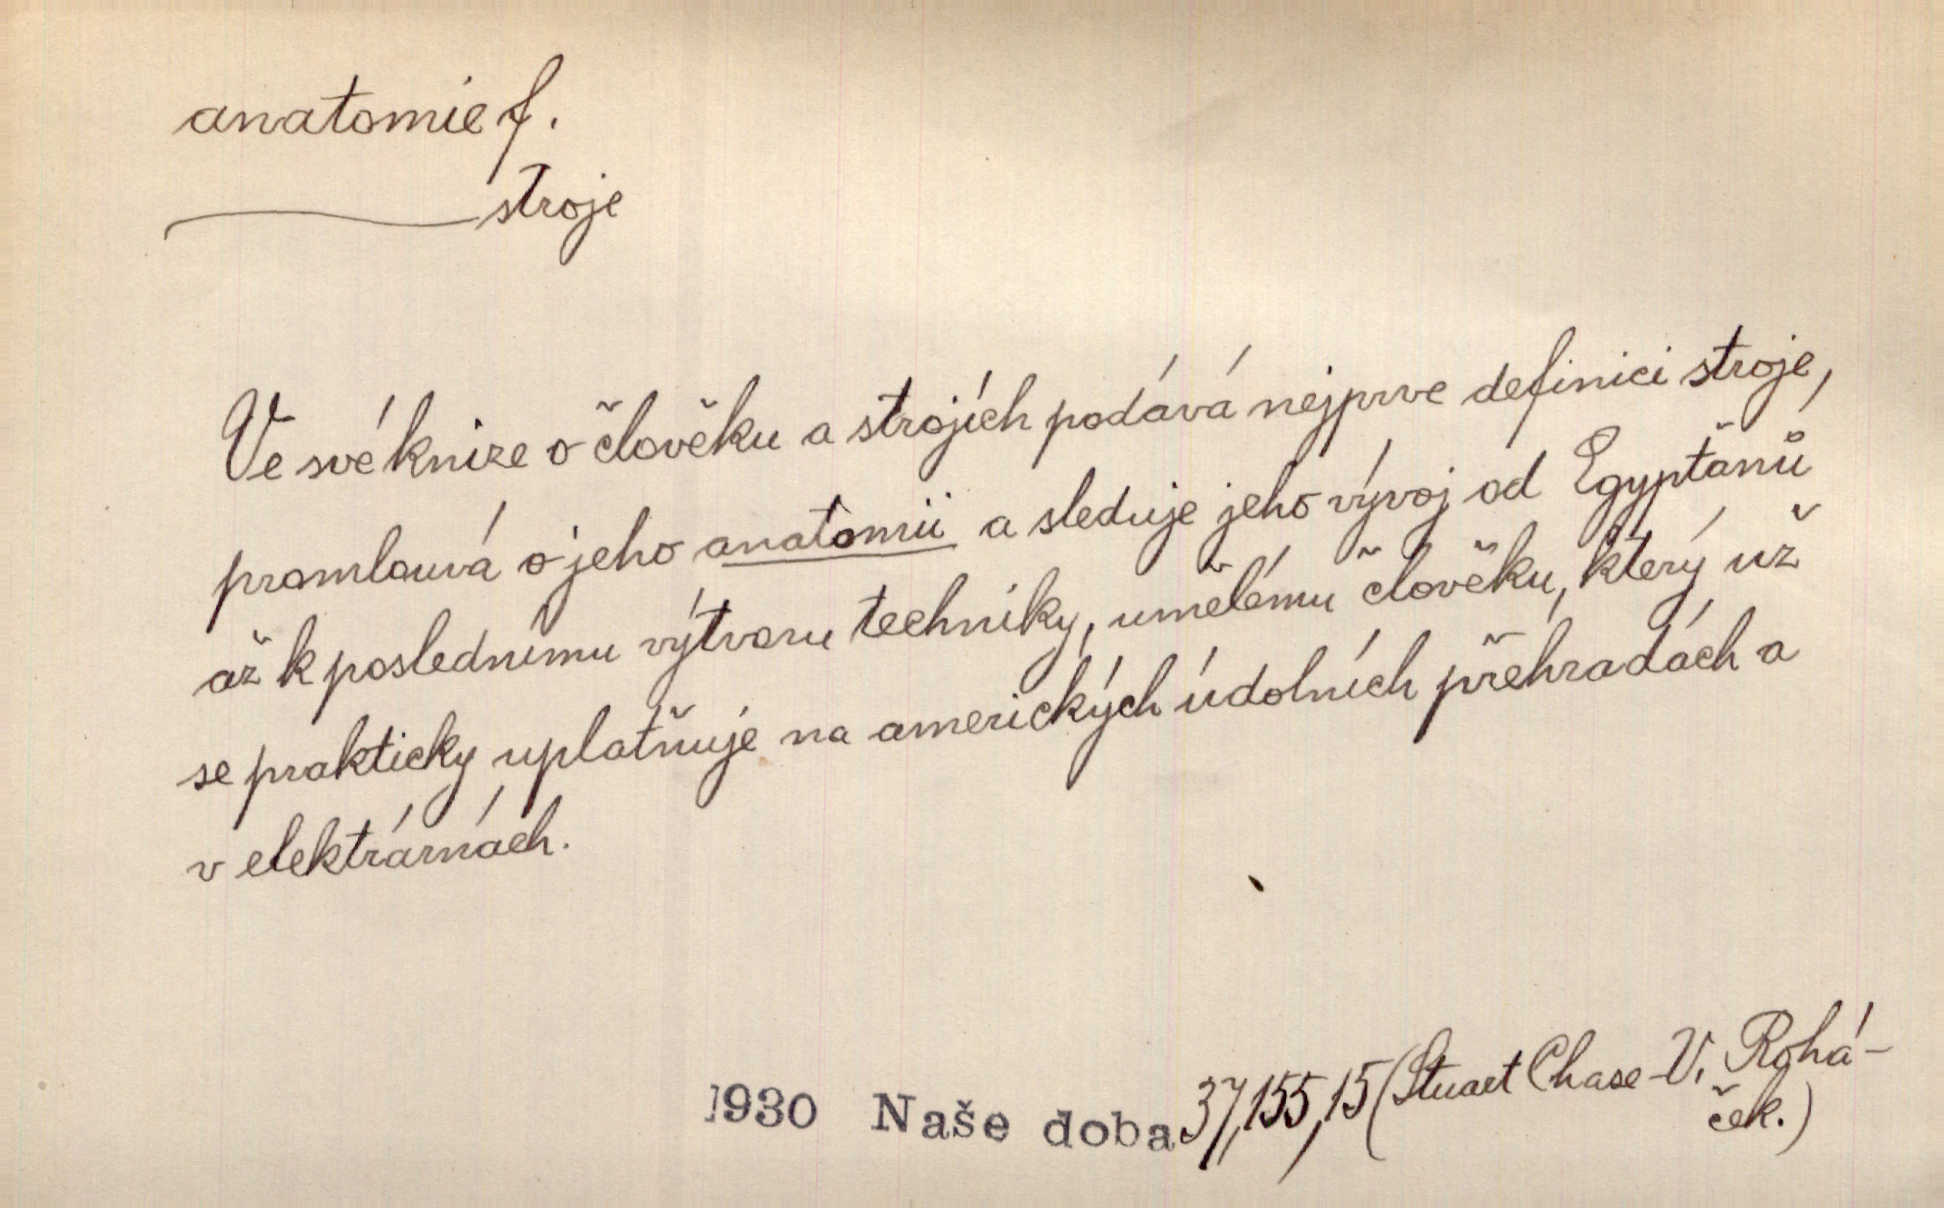 anatomie f.
stroje
Ve své knize o člověku a strojích podává nejprve definici stroje,
promlouvá o jeho anatomii a sleduje jeho vývoj od Egypťanů
až k poslednímu výtvoru techniky, umělému člověku, který už
se prakticky uplatňuje na amerických údolních přehradách a
v elektrárnách.
1930 Naše doba 37,155,15 (Stuart Chase - V. Rohá-
ček.)